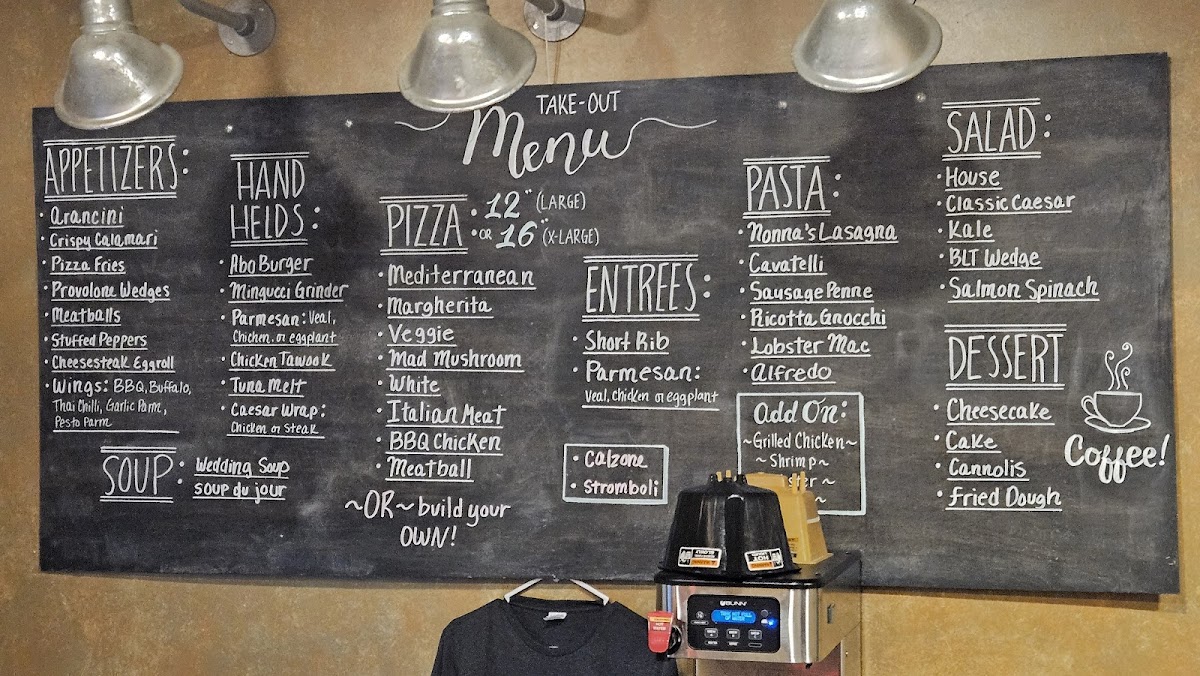 TAKE-OUT
Menu
APPETIZERS:
• Arancini
• Crispy Calamari
• Pizza Fries
• Provolone Wedges
• Meatballs
• Stuffed Peppers
• Cheesesteak Eggroll
• Wings: BBQ, Buffalo,
Thai Chilli, Garlic Parm,
Pesto Parm
SOUP:
Wedding Soup
soup du jour
HAND
HELDS:
• Abo Burger
• Mingucci Grinder
• Parmesan: Veal,
Chicken, or eggplant
• Chicken Tawook
• Tuna Melt
• Caesar Wrap:
Chicken or Steak
PIZZA: 12" (LARGE)
OR 16" (X-LARGE)
• Mediterranean
• Margherita
• Veggie
• Mad Mushroom
• White
• Italian Meat
• BBQ Chicken
• Meatball
~OR~ build your
OWN!
ENTREES:
• Short Rib
• Parmesan:
Veal, chicken or eggplant
• Calzone
• Stromboli
PASTA:
• Nonna's Lasagna
• Cavatelli
• Sausage Penne
• Ricotta Gnocchi
• Lobster Mac
• Alfredo
Add On:
~Grilled Chicken~
~Shrimp~
SALAD:
• House
• Classic Caesar
• Kale
• BLT Wedge
• Salmon Spinach
DESSERT
• Cheesecake
• Cake
• Cannolis
• Fried Dough
Coffee!
HOT
BUNN